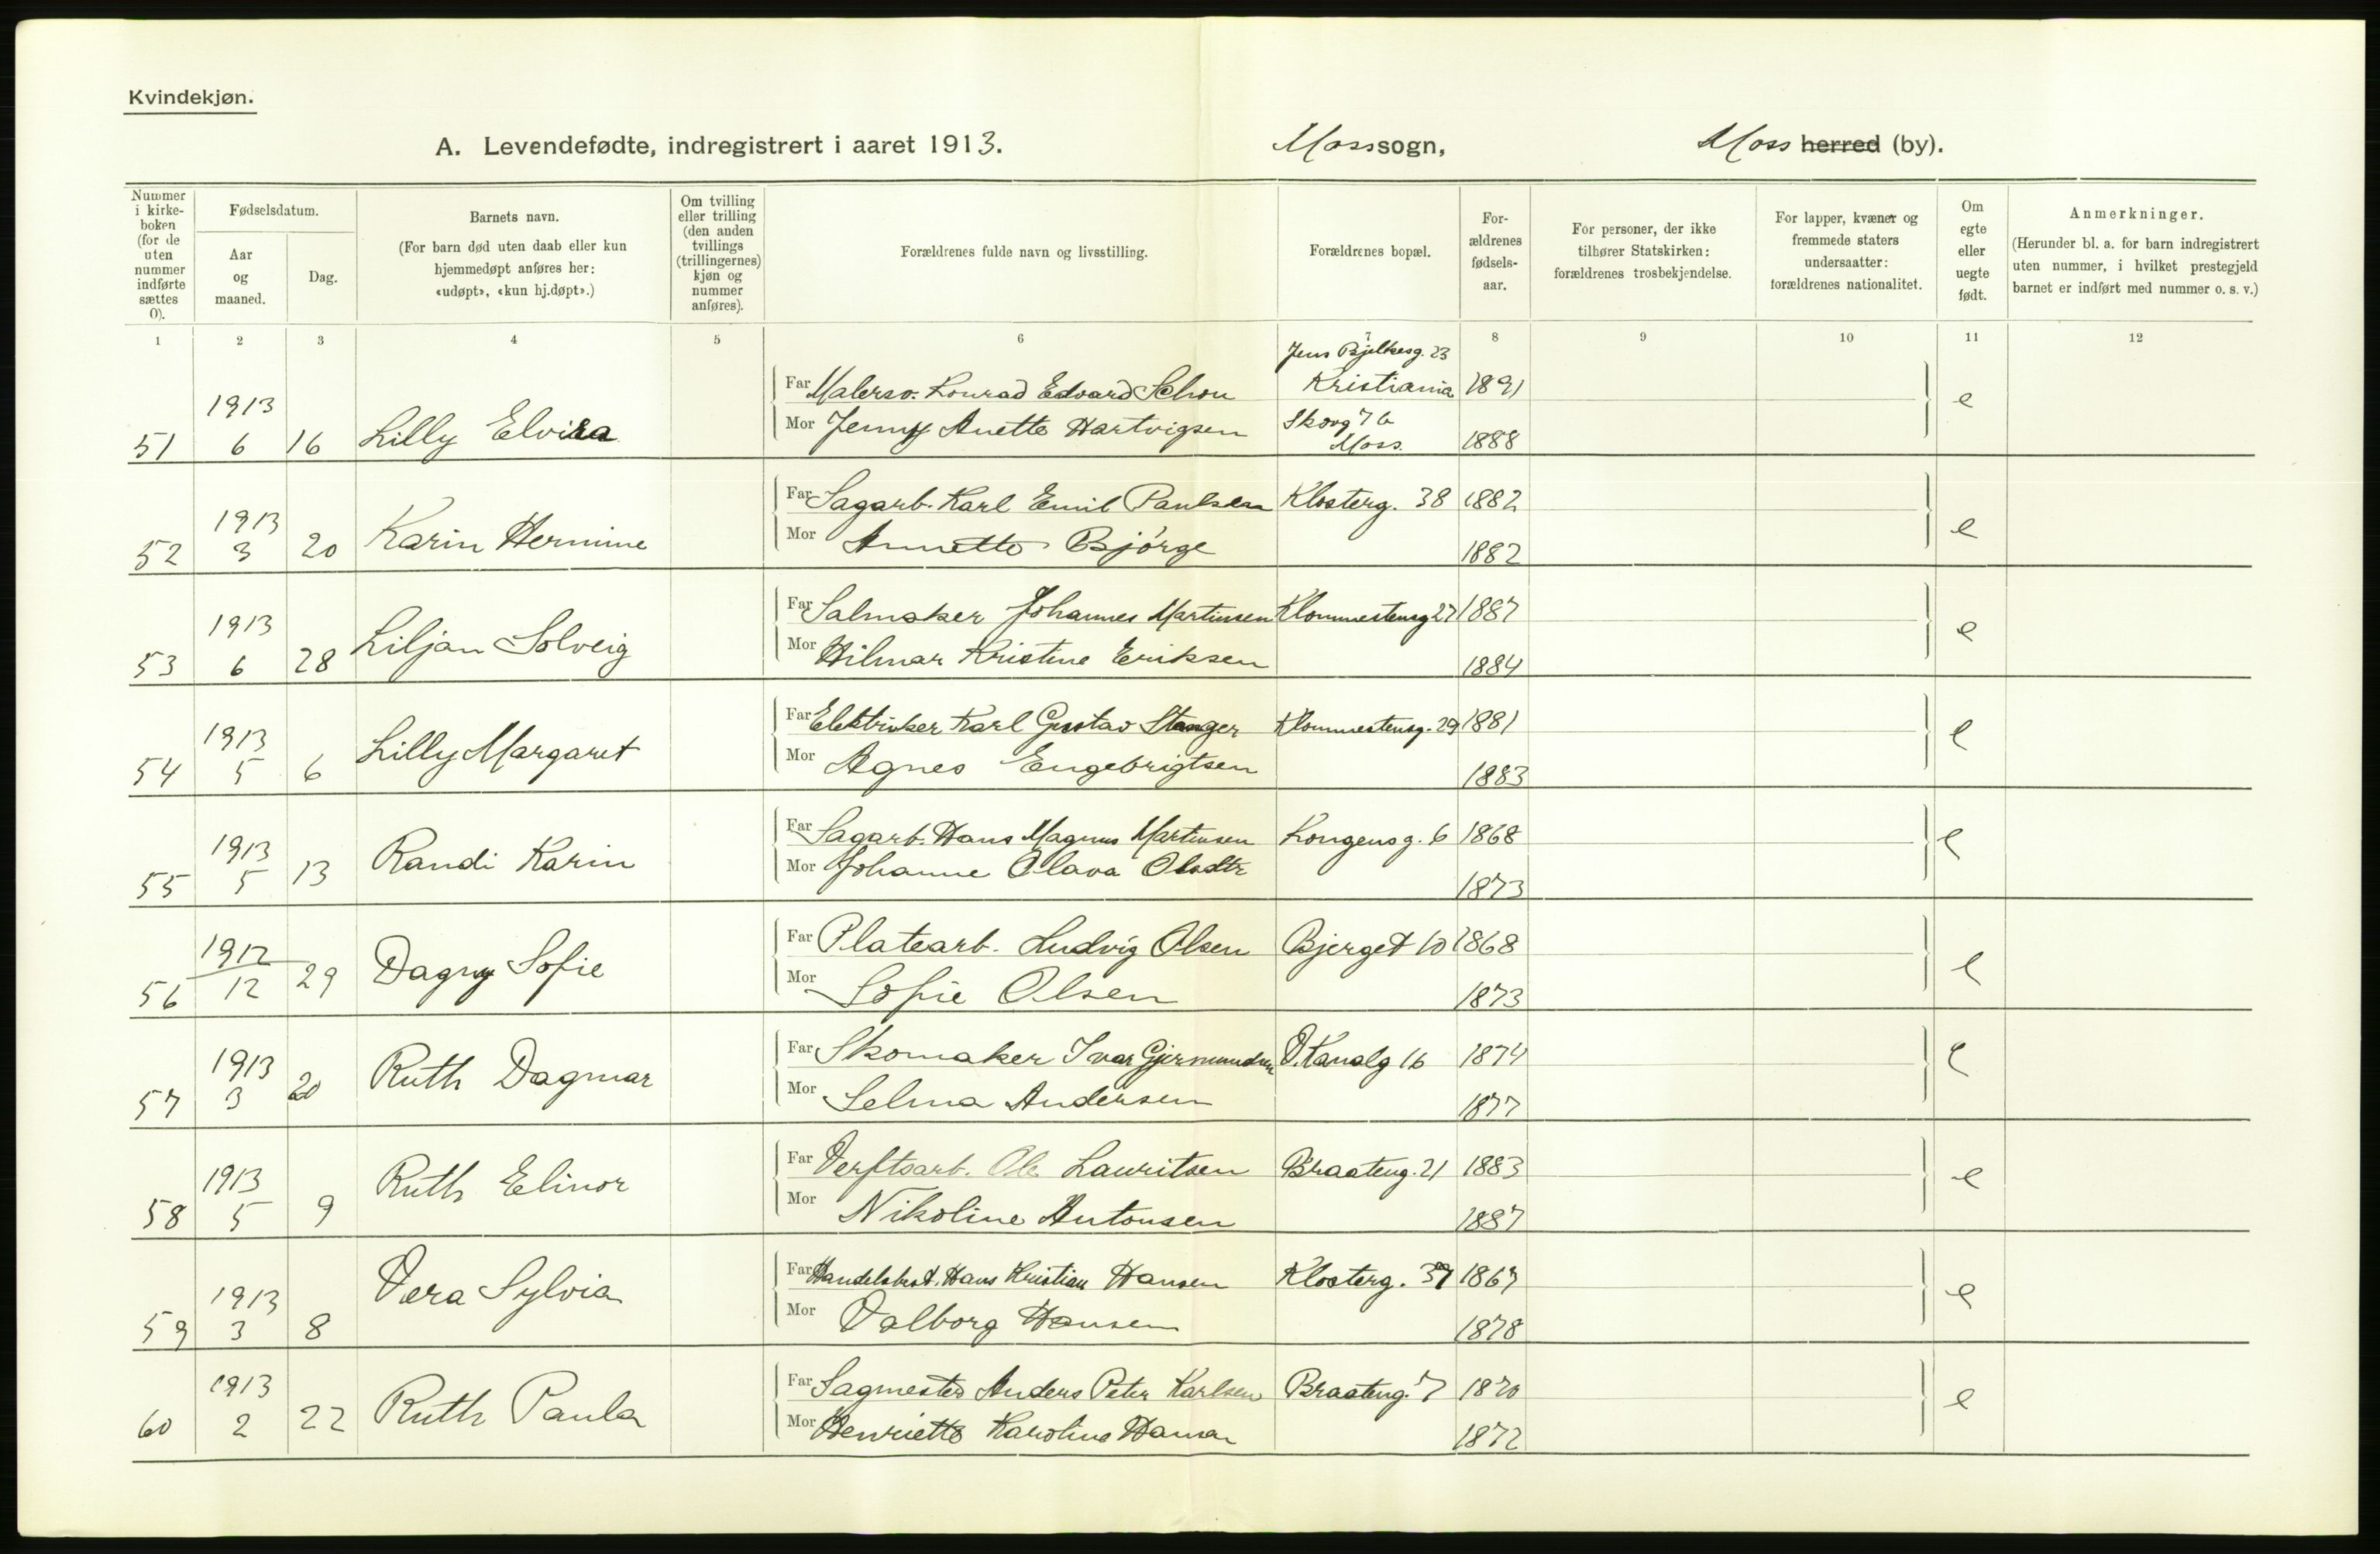 Kvindekjøn.
A. Levendefødte, indregistrert i aaret 1913. Moss sogn, Moss herred (by).
Nummer i kirke-boken (for de uten nummer indførte sættes 0).
Fødselsdatum.
Aar og maaned.
Dag.
Barnets navn.
(For barn død uten daab eller kun hjemmedøpt anføres her: «udøpt», «kun hj.døpt».)
Om tvilling eller trilling (den anden tvillings (trillingernes) kjøn og nummer anføres).
Forældrenes fulde navn og livsstilling.
Forældrenes bopæl.
For-ældrenes fødsels-aar.
For personer, der ikke tilhører Statskirken: forældrenes trosbekjendelse.
For lapper, kvæner og fremmede staters undersaatter: forældrenes nationalitet.
Om egte eller uegte født.
Anmerkninger.
(Herunder bl. a. for barn indregistrert uten nummer, i hvilket prestegjeld barnet er indført med nummer o. s. v.)
1 2 3 4 5 6 7 8 9 10 11 12
Jens Bjelkesg. 23
Far Malersv. Konrad Edvard Schou Kristiania 1891
51 1913 6 16 Lilly Elvira e
Mor Jenny Anette Hartvigsen Skovg 7 b Moss. 1888
Far Sagarb. Karl Emil Paulsen Klosterg. 38 1882
52 1913 3 20 Karin Hermine e
Mor Annette Bjørge 1882
Far Salmaker Johannes Martinsen Klommestensg 27 1887
53 1913 6 28 Liljan Solveig e
Mor Hilmar Kristine Eriksen 1884
Far Elektriker Karl Gustav Stanger Klommestensg. 29 1881
54 1913 5 6 Lilly Margaret e
Mor Agnes Engebrigtsen 1883
Far Sagarb. Hans Magnus Martinsen Kongensg. 6 1868
55 1913 5 13 Randi Karin e
Mor Johanne Olava Olsdtr 1873
Far Platearb. Ludvig Olsen Bjerget 10 1868
56 1912 12 29 Dagny Sofie e
Mor Sofie Olsen 1873
Far Skomaker Ivar Gjermundsen V. Kanalg 16 1874
57 1913 3 20 Ruth Dagmar e
Mor Selma Andersen 1877
Far Verftsarb. Ole Lauritsen Braateng. 21 1883
58 1913 5 9 Ruth Elinor e
Mor Nikoline Antonsen 1887
Far Handelsbest. Hans Kristian Hansen Klosterg. 37 1867
59 1913 3 8 Vera Sylvia e
Mor Valborg Hansen 1878
Far Sagmester Anders Peter Karlsen Braateng. 7 1870
60 1913 2 22 Ruth Paula e
Mor Henriette Karoline Hansen 1872